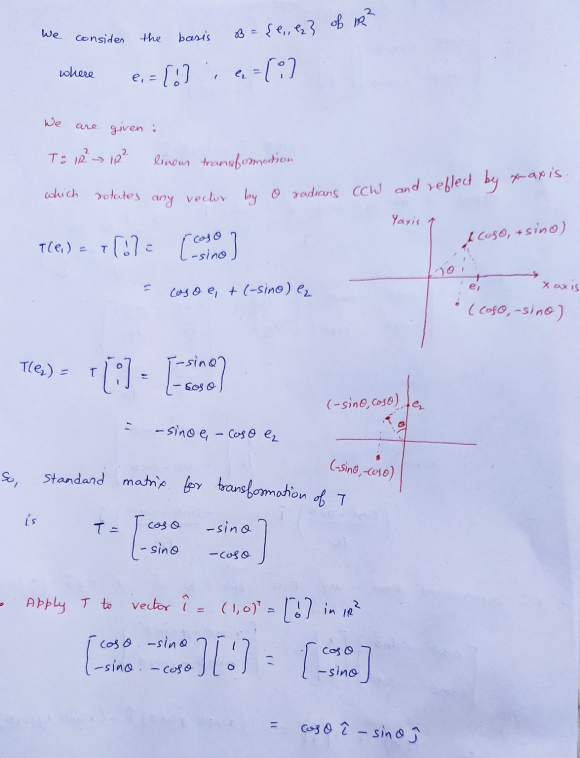 We consider the basis B = {e₁, e₂} of ℝ²
where e₁ = [1 0], e₂ = [0 1]
We are given :
T: ℝ² → ℝ² linear transformation
which rotates any vector by θ radians CCW and reflect by x-axis.
T(e₁) = T[1 0] = [cosθ -sinθ]
= cosθ e₁ + (-sinθ) e₂
Yaxis
(cosθ, +sinθ)
θ
e₁
X axis
(cosθ, -sinθ)
T(e₂) = T[0 1] = [-sinθ -cosθ]
= -sinθ e₁ - cosθ e₂
(-sinθ, cosθ)
e₂
θ
(-sinθ, -cosθ)
So, standard matrix for transformation of T
is T = [cosθ -sinθ -sinθ -cosθ]
• Apply T to vector î = (1,0)ᵀ = [1 0] in ℝ²
[cosθ -sinθ -sinθ -cosθ][1 0] = [cosθ -sinθ]
= cosθ î - sinθ ĵ